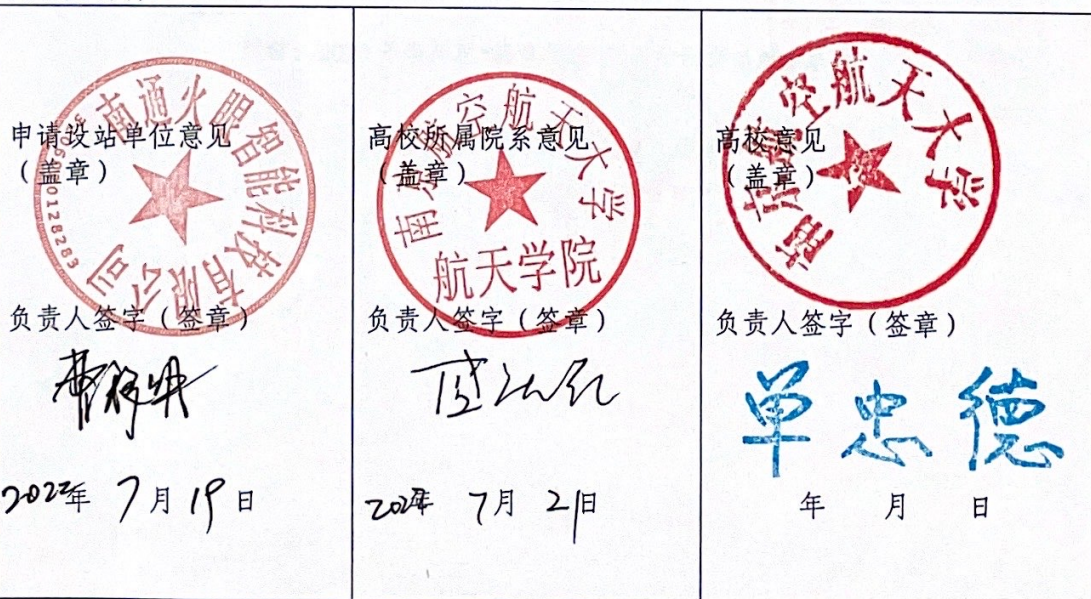 申请设站单位意见
（盖章）
南通火眼智能科技有限公司
负责人签字（签章）
2022年 7月 19日
高校所属院系意见
（盖章）
南京航空航天大学
航天学院
负责人签字（签章）
2022年 7月 21日
高校意见
（盖章）
南京航空航天大学
负责人签字（签章）
单忠德
年 月 日